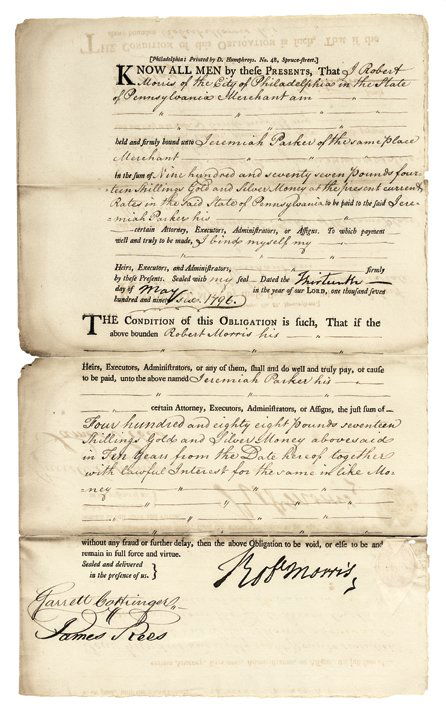 [Philadelphia: Printed by D. Humphreys, No. 48, Spruce-street.]
KNOW ALL MEN by these PRESENTS, That I Robert
Morris of the City of Philadelphia in the State
of Pennsylvania Merchant am
held and firmly bound unto Jeremiah Parker of the same place
Merchant
in the sum of Nine hundred and seventy seven pounds four-
teen Shillings Gold and Silver Money at the present current
Rates in the said State of Pennsylvania to be paid to the said Jere-
miah Parker his
certain Attorney, Executors, Administrators, or Assigns. To which payment
well and truly to be made, I bind myself my
Heirs, Executors, and Administrators, firmly
by these Presents. Sealed with my seal Dated the Thirteenth
day of May in the year of our LORD, one thousand seven
hundred and ninety six 1796.
THE CONDITION of this OBLIGATION is such, That if the
above bounden Robert Morris his
Heirs, Executors, Administrators, or any of them, shall and do well and truly pay, or cause
to be paid, unto the above named Jeremiah Parker his
certain Attorney, Executors, Administrators, or Assigns, the just sum of
Four hundred and eighty eight pounds seventeen
Shillings Gold and Silver Money abovesaid
in Ten Years from the Date hereof together
with Lawful Interest for the same in like Mo-
ney
without any fraud or further delay, then the above Obligation to be void, or else to be and
remain in full force and virtue.
Sealed and delivered
in the presence of us.
Robt Morris
Garrett Cottringer
James Rees